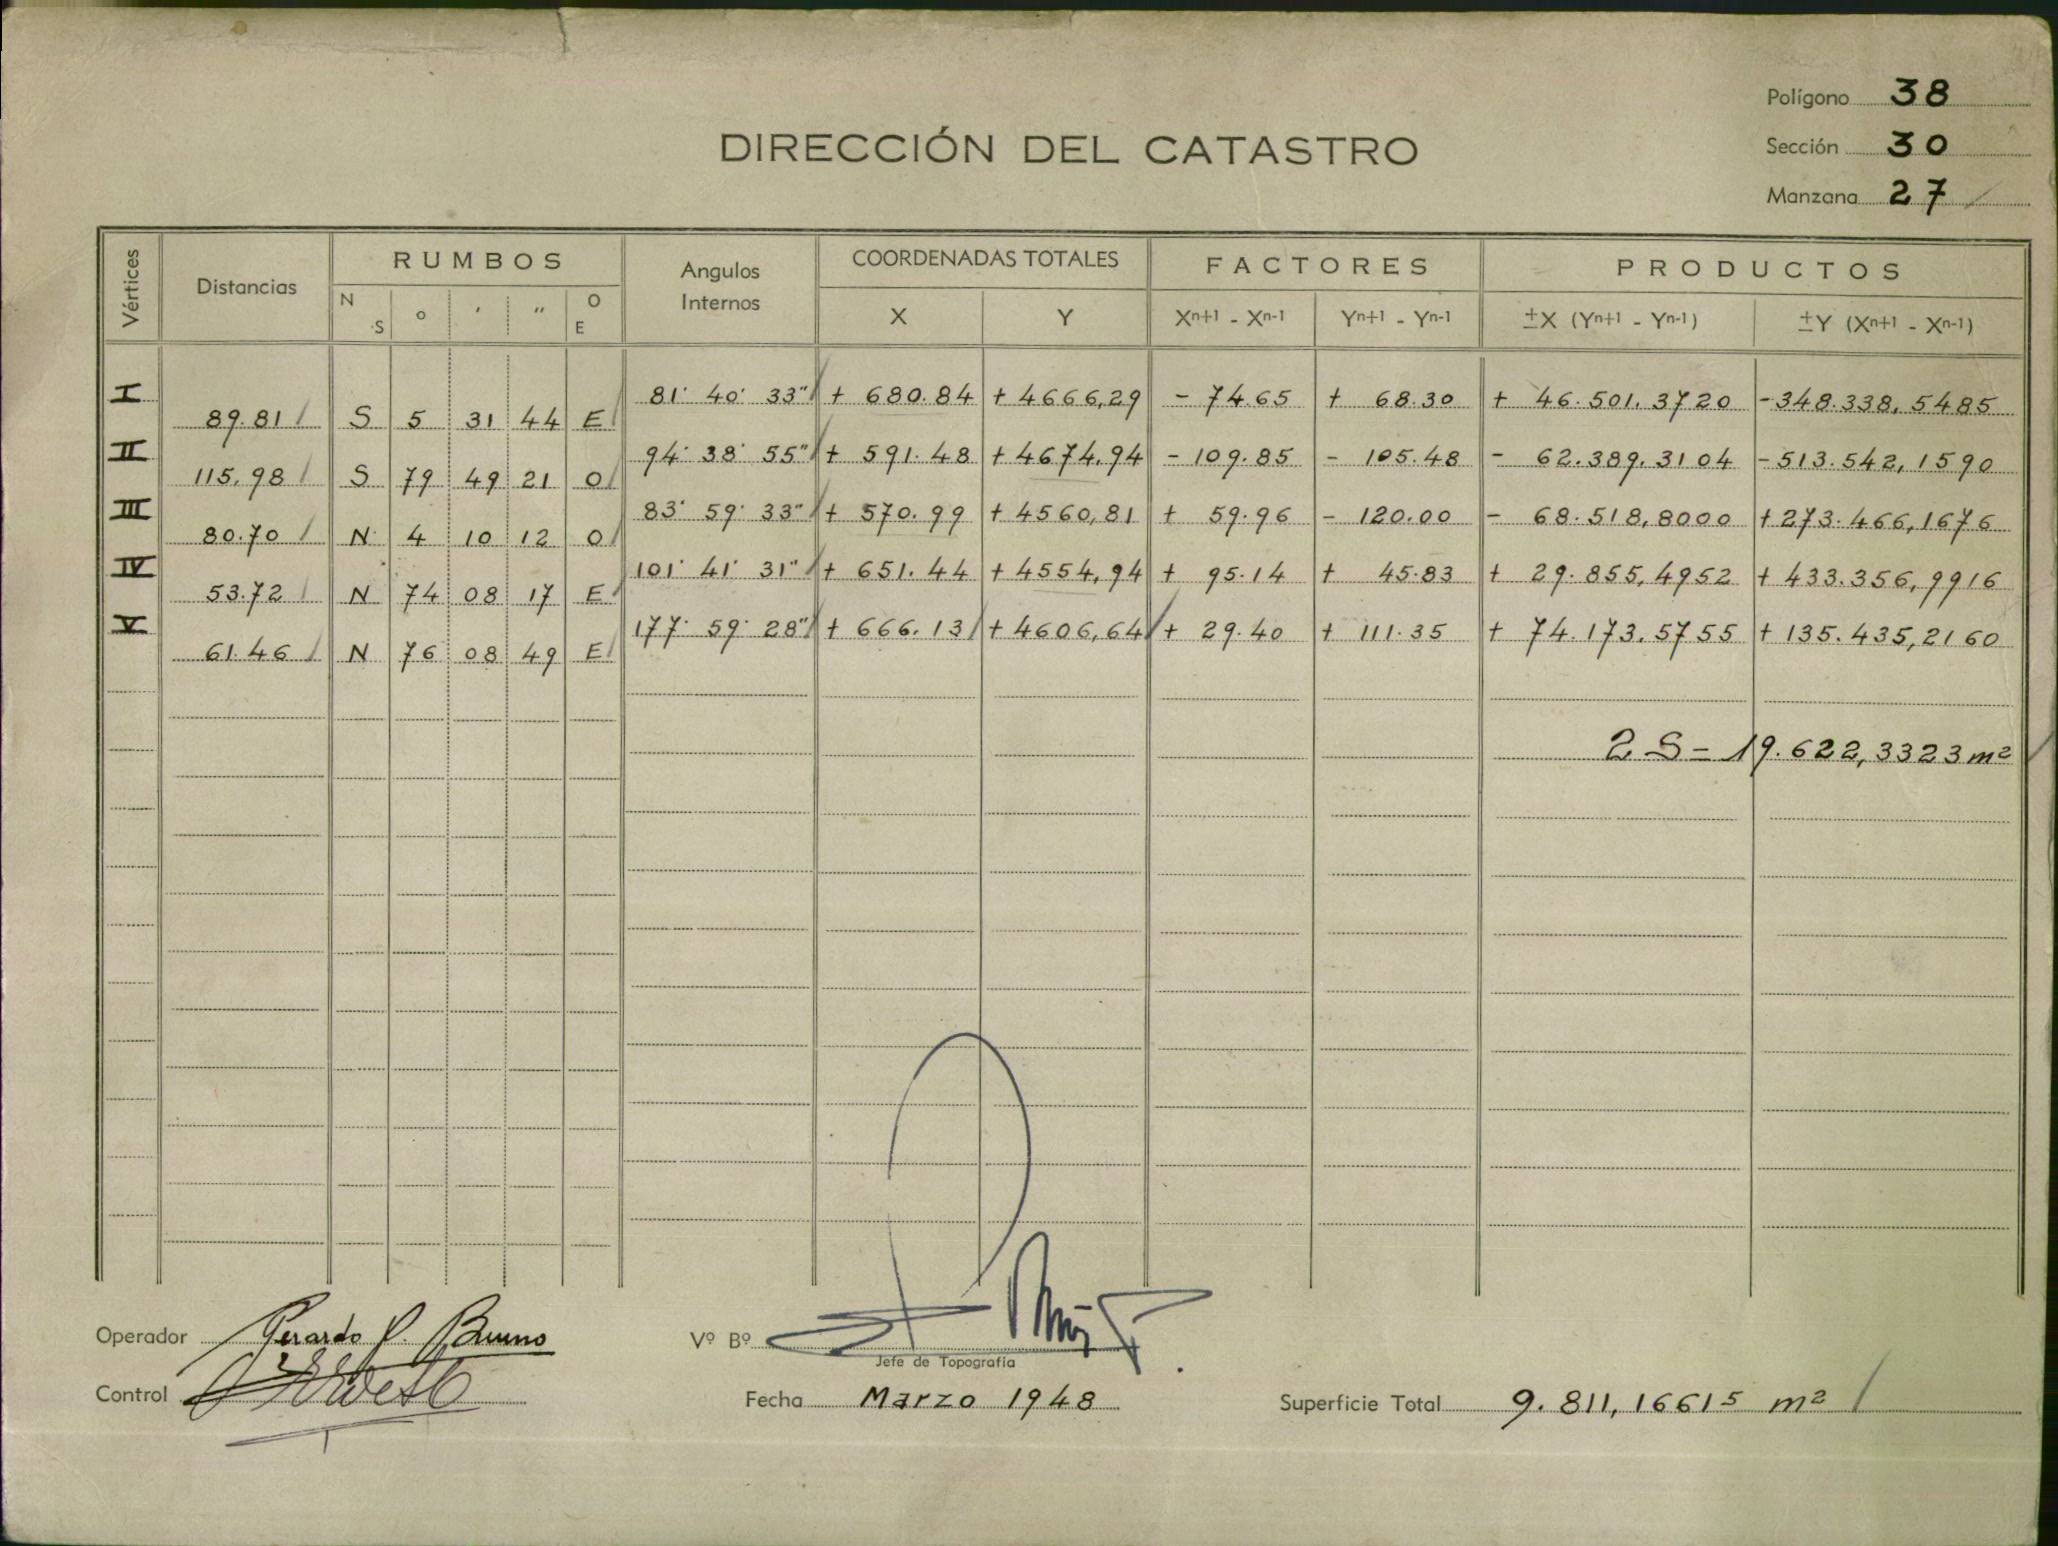 Polígono 38
DIRECCIÓN DEL CATASTRO
Sección 30
Manzana 27
Vértices Distancias RUMBOS Angulos Internos COORDENADAS TOTALES FACTORES PRODUCTOS
N S ° ' " O E X Y Xⁿ⁺¹ - Xⁿ⁻¹ Yⁿ⁺¹ - Yⁿ⁻¹ ±X (Yⁿ⁺¹ - Yⁿ⁻¹) ±Y (Xⁿ⁺¹ - Xⁿ⁻¹)
I 81° 40' 33" + 680.84 + 4666,29 - 74.65 + 68.30 + 46.501.3720 - 348.338,5485
89.81 S 5 31 44 E
II 94° 38' 55" + 591.48 + 4674.94 - 109.85 - 105.48 - 62.389.3104 - 513.542,1590
115,98 S 79 49 21 O
III 83° 59' 33" + 570.99 + 4560,81 + 59.96 - 120.00 - 68.518,8000 + 273.466,1676
80.70 N 4 10 12 O
IV 101° 41' 31" + 651.44 + 4554,94 + 95.14 + 45.83 + 29.855,4952 + 433.356,9916
53.72 N 74 08 17 E
V 177° 59' 28" + 666.13 + 4606,64 + 29.40 + 111.35 + 74.173.5755 + 135.435,2160
61.46 N 76 08 49 E
2 S = 19.622,3323 m²
Operador Gerardo P. Bruno
Vº Bº
Jefe de Topografía
Control
Fecha Marzo 1948
Superficie Total 9.811,16615 m²